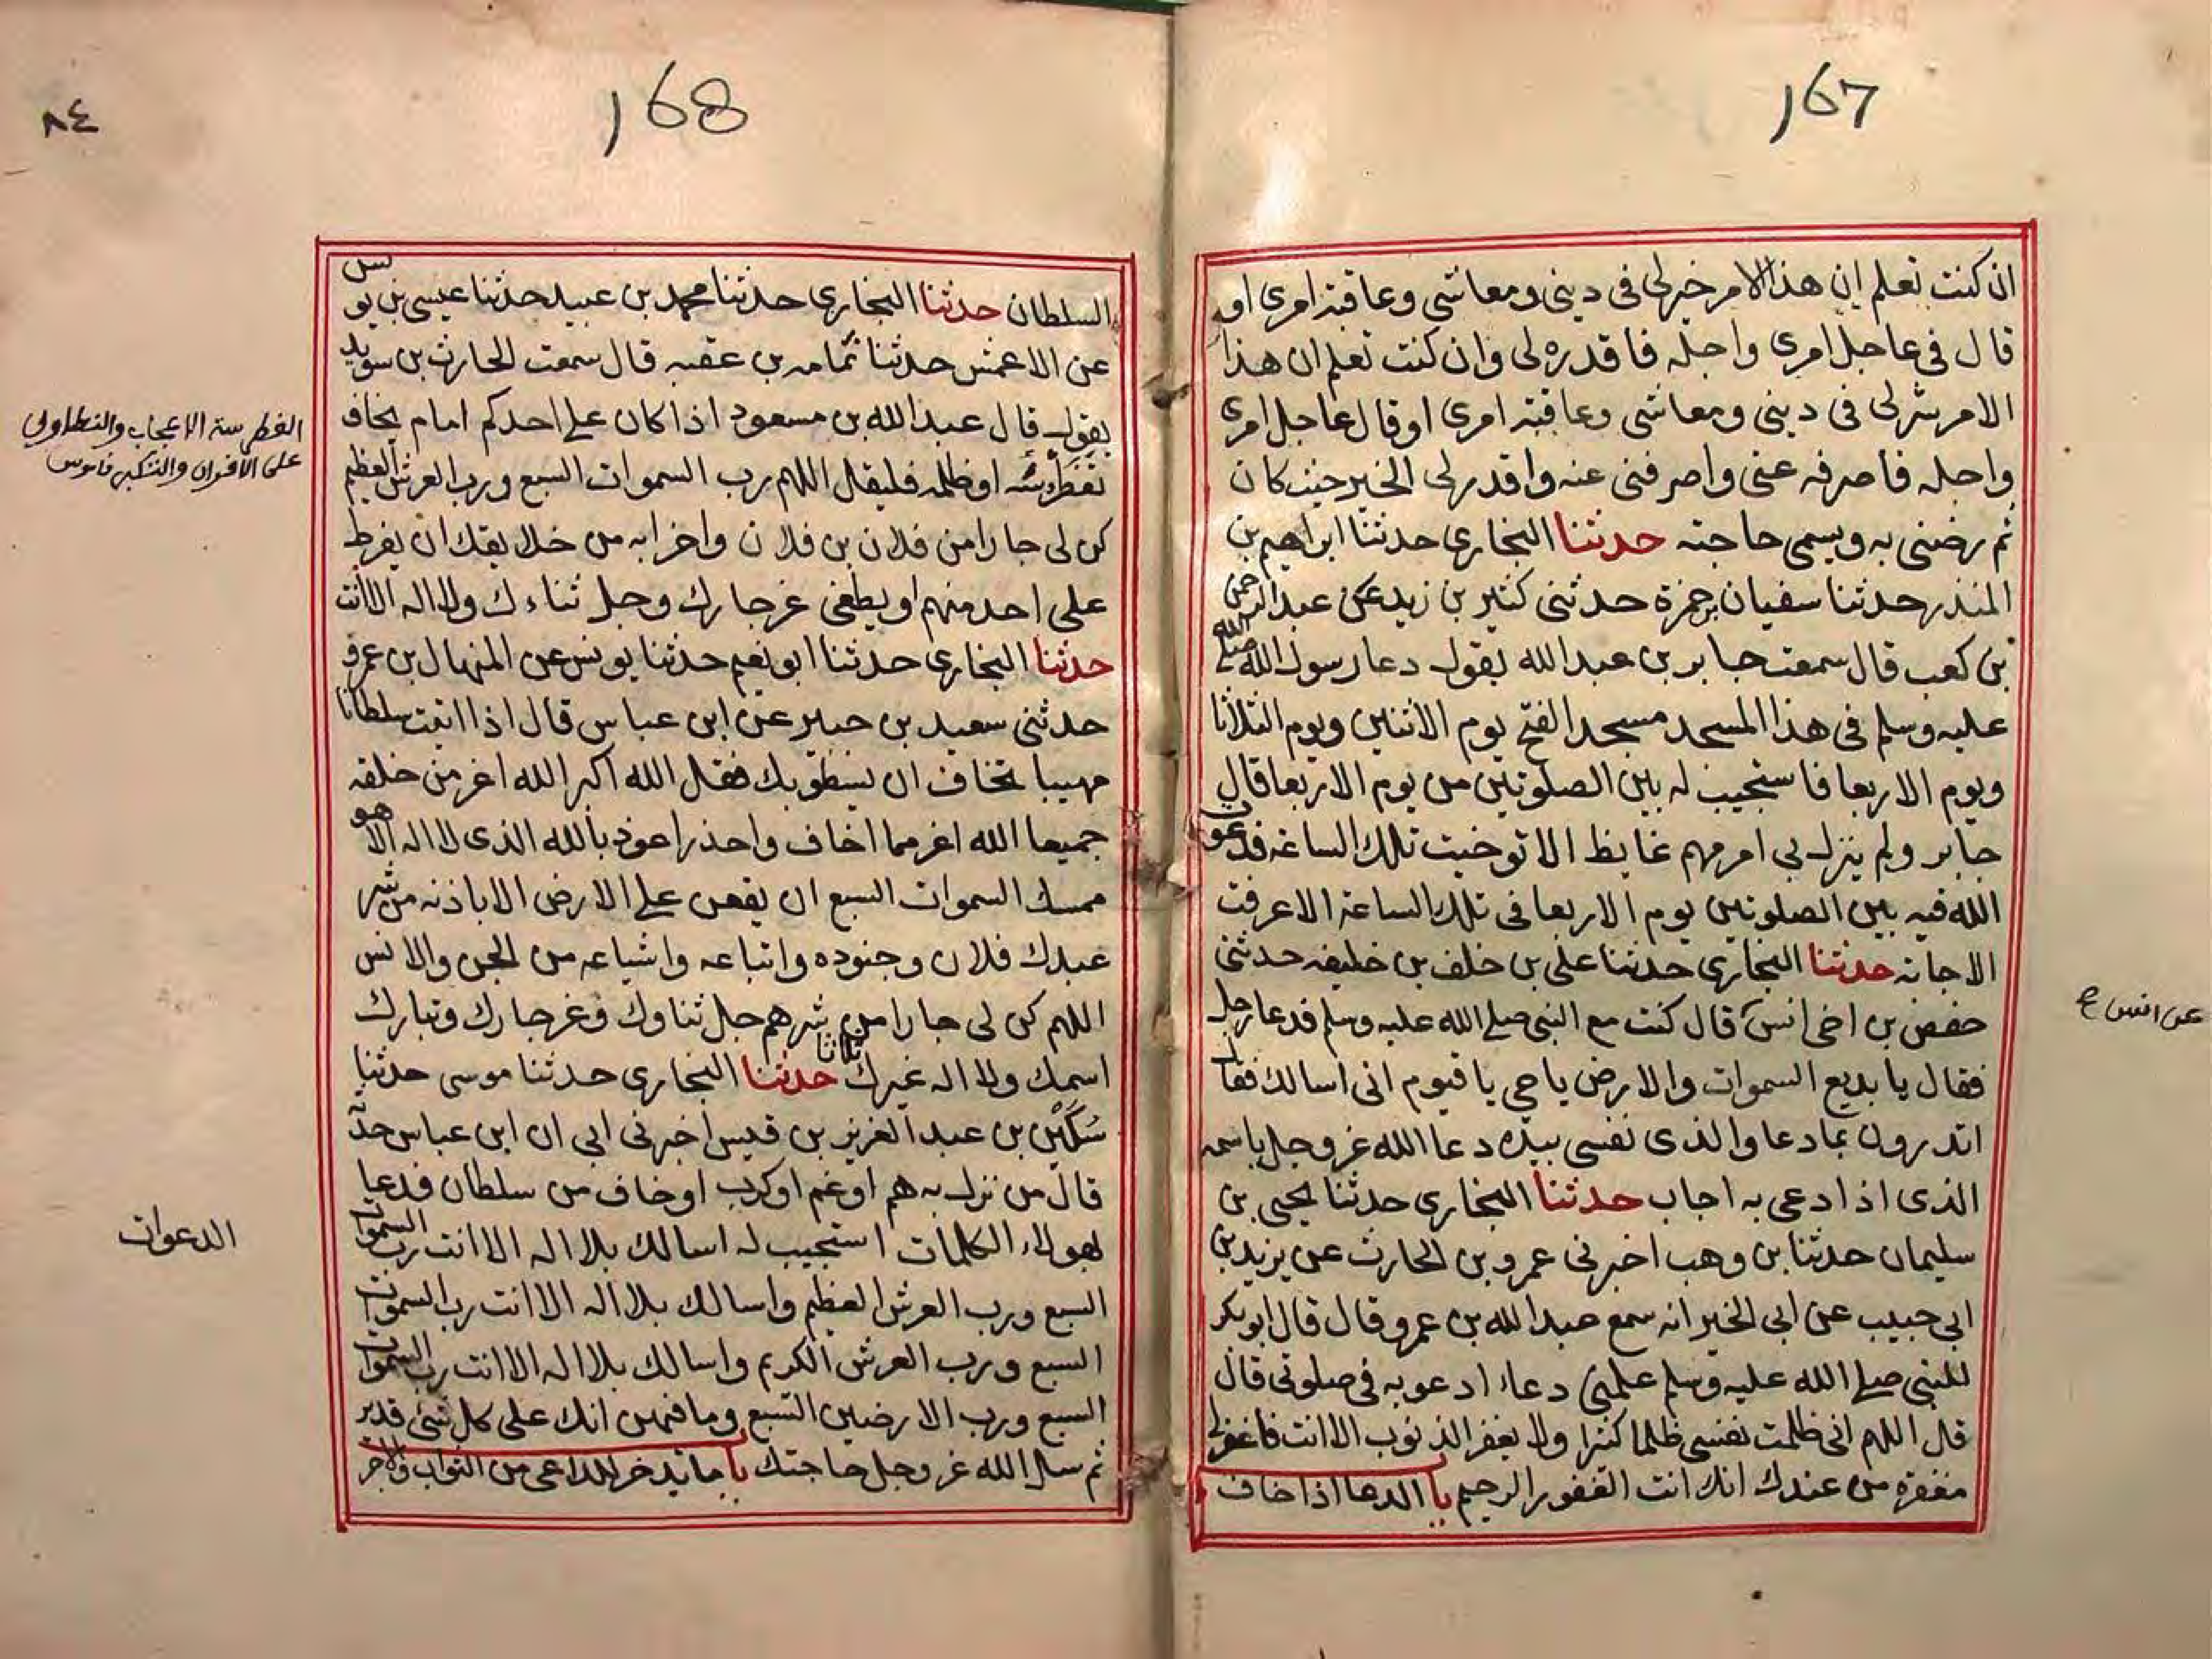 167
ان كنت تعلم ان هذا الامر خير لى فى دينى ومعاشى وعاقبة امرى او
قال فى عاجل امرى واجله فاقدره لى وان كنت تعلم ان هذا
الامر شر لى فى دينى ومعاشى وعاقبة امرى او قال عاجل امرى
واجله فاصرفه عنى واصرفنى عنه واقدر لى الخير حيث كان
ثم رضنى به ويسمى حاجته حدثنا البخارى حدثنا ابراهيم بن
المنذر حدثنا سفيان بن حمزة حدثنى كثير بن زيد عن عبد الرحمن
بن كعب قال سمعت جابر بن عبد الله يقول دعا رسول الله صلى الله
عليه وسلم فى هذا المسجد مسجد الفتح يوم الاثنين ويوم الثلاثا
ويوم الاربعا فاستجيب له بين الصلوتين من يوم الاربعا قال
جابر ولم ينزل بى امر مهم غايظ الا توخيت تلك الساعة فدعوت
الله فيه بين الصلوتين يوم الاربعا فى تلك الساعة الا عرفت
الاجابة حدثنا البخارى حدثنا على بن خلف بن خليفه حدثنى
حفص بن اخى انس قال كنت مع النبى صلى الله عليه وسلم فدعا رجل
عن انس ع
فقال يا بديع السموات والارض يا حى يا قيوم انى اسالك فقال
اتدرون بما دعا والذى نفسى بيده دعا الله عز وجل باسمه
الذى اذا دعى به اجاب حدثنا البخارى حدثنا يحيى بن
سليمان حدثنا بن وهب اخبرنى عمرو بن الحارث عن يزيد بن
ابى حبيب عن ابى الخير انه سمع عبد الله بن عمرو قال قال ابو بكر
للنبى صلى الله عليه وسلم علمنى دعاء ادعو به فى صلوتى قال
قل اللهم انى ظلمت نفسى ظلما كثيرا ولا يغفر الذنوب الا انت فاغفر لى
مغفرة من عندك انك انت الغفور الرحيم باب الدعا اذا خاف
168
٨٤
السلطان حدثنا البخارى حدثنا محمد بن عبيد حدثنا عيسى بن يونس
عن الاعمش حدثنا ثمامه بن عقبه قال سمعت الحارث بن سويد
يقول قال عبد الله بن مسعود اذا كان على احدكم امام يخاف
تغطرسه او ظلمه فليقل اللهم رب السموات السبع ورب العرش العظيم
الغطرسة الاعجاب والتطاول
على الاقران والتكبر قاموس
كن لى جارا من فلان بن فلان واحزابه من خلايقك ان يفرط
على احد منهم او يطغى عز جارك وجل ثناءك ولا اله الا انت
حدثنا البخارى حدثنا ابو نعيم حدثنا يونس عن المنهال بن عمرو
حدثنى سعيد بن جبير عن ابن عباس قال اذا اتيت سلطانا
مهيبا تخاف ان يسطو بك فقل الله اكبر الله اعز من خلقه
جميعا الله اعز مما اخاف واحذر اعوذ بالله الذى لا اله الا هو
ممسك السموات السبع ان يقعن على الارض الا باذنه من شر
عبدك فلان وجنوده واتباعه واشياعه من الجن والانس
اللهم كن لى جارا من شرهم جل ثناوك وعز جارك وتبارك
اسمك ولا اله غيرك ثلاثا حدثنا البخارى حدثنا موسى حدثنا
سُكَيْن بن عبد العزيز بن قيس اخبرنى ابى ان ابن عباس حدثه
قال من نزل به هم او غم او كرب او خاف من سلطان فدعا
بهولاء الكلمات استجيب له اسالك بلا اله الا انت رب السموات
الدعوات
السبع ورب العرش العظيم واسالك بلا اله الا انت رب السموات
السبع ورب العرش الكريم واسالك بلا اله الا انت رب السموات
السبع ورب الارضين السبع وما فيهن انك على كل شئ قدير
ثم سل الله عز وجل حاجتك باب ما يدخر للداعى من الثواب والاجر